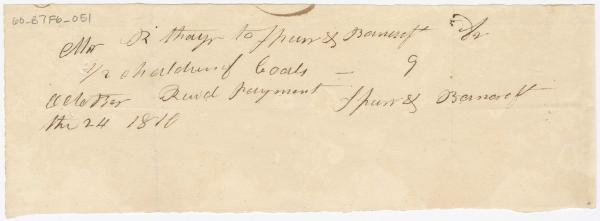 60-B7F6-051
Mr R thayr to Spear & Bancroft Dr
1/2 Chaldren of Coals — 9
October Recvd Payment Spear & Bancroft
the 24 1810